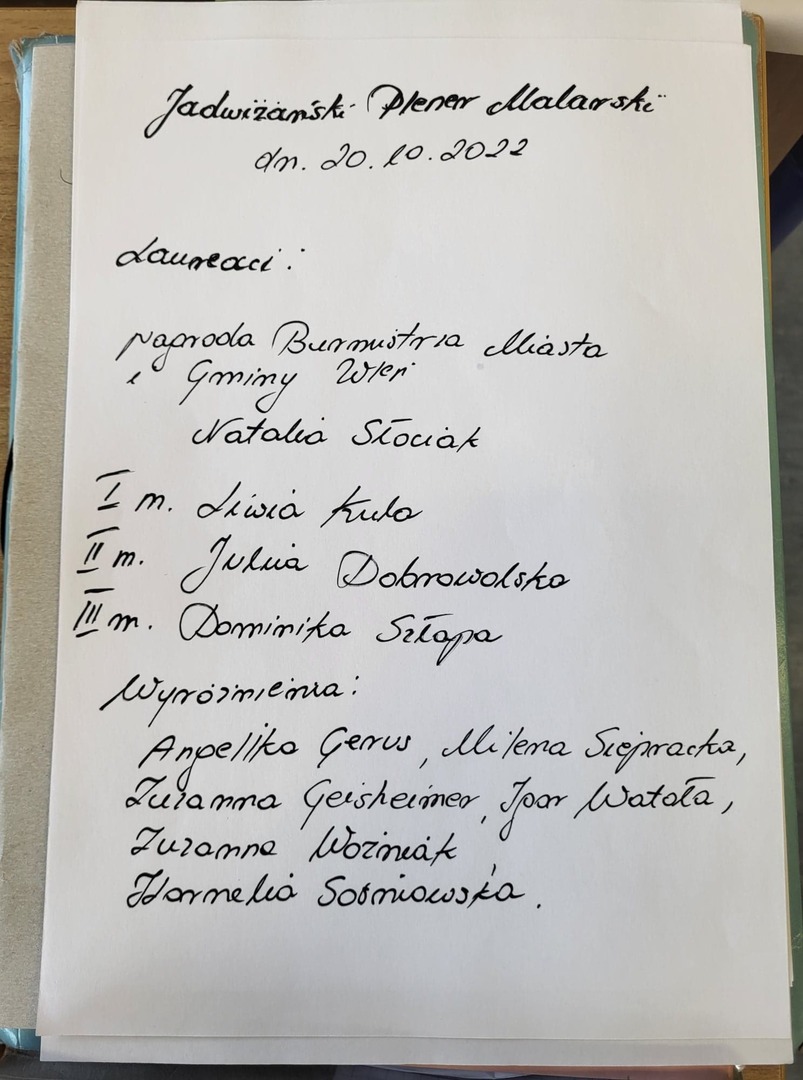 Jadwiżański Plener Malarski
dn. 20.10.2022
Laureaci:
nagroda Burmistrza Miasta
i Gminy Wleń
Natalia Słociak
I m. Liwia Kula
II m. Julia Dobrowolska
III m. Dominika Szłapa
Wyróżnienia:
Angelika Gerus, Milena Siepracka,
Zuzanna Geisheimer, Igor Watoła,
Zuzanna Woźniak,
Kornelia Sośniowska.